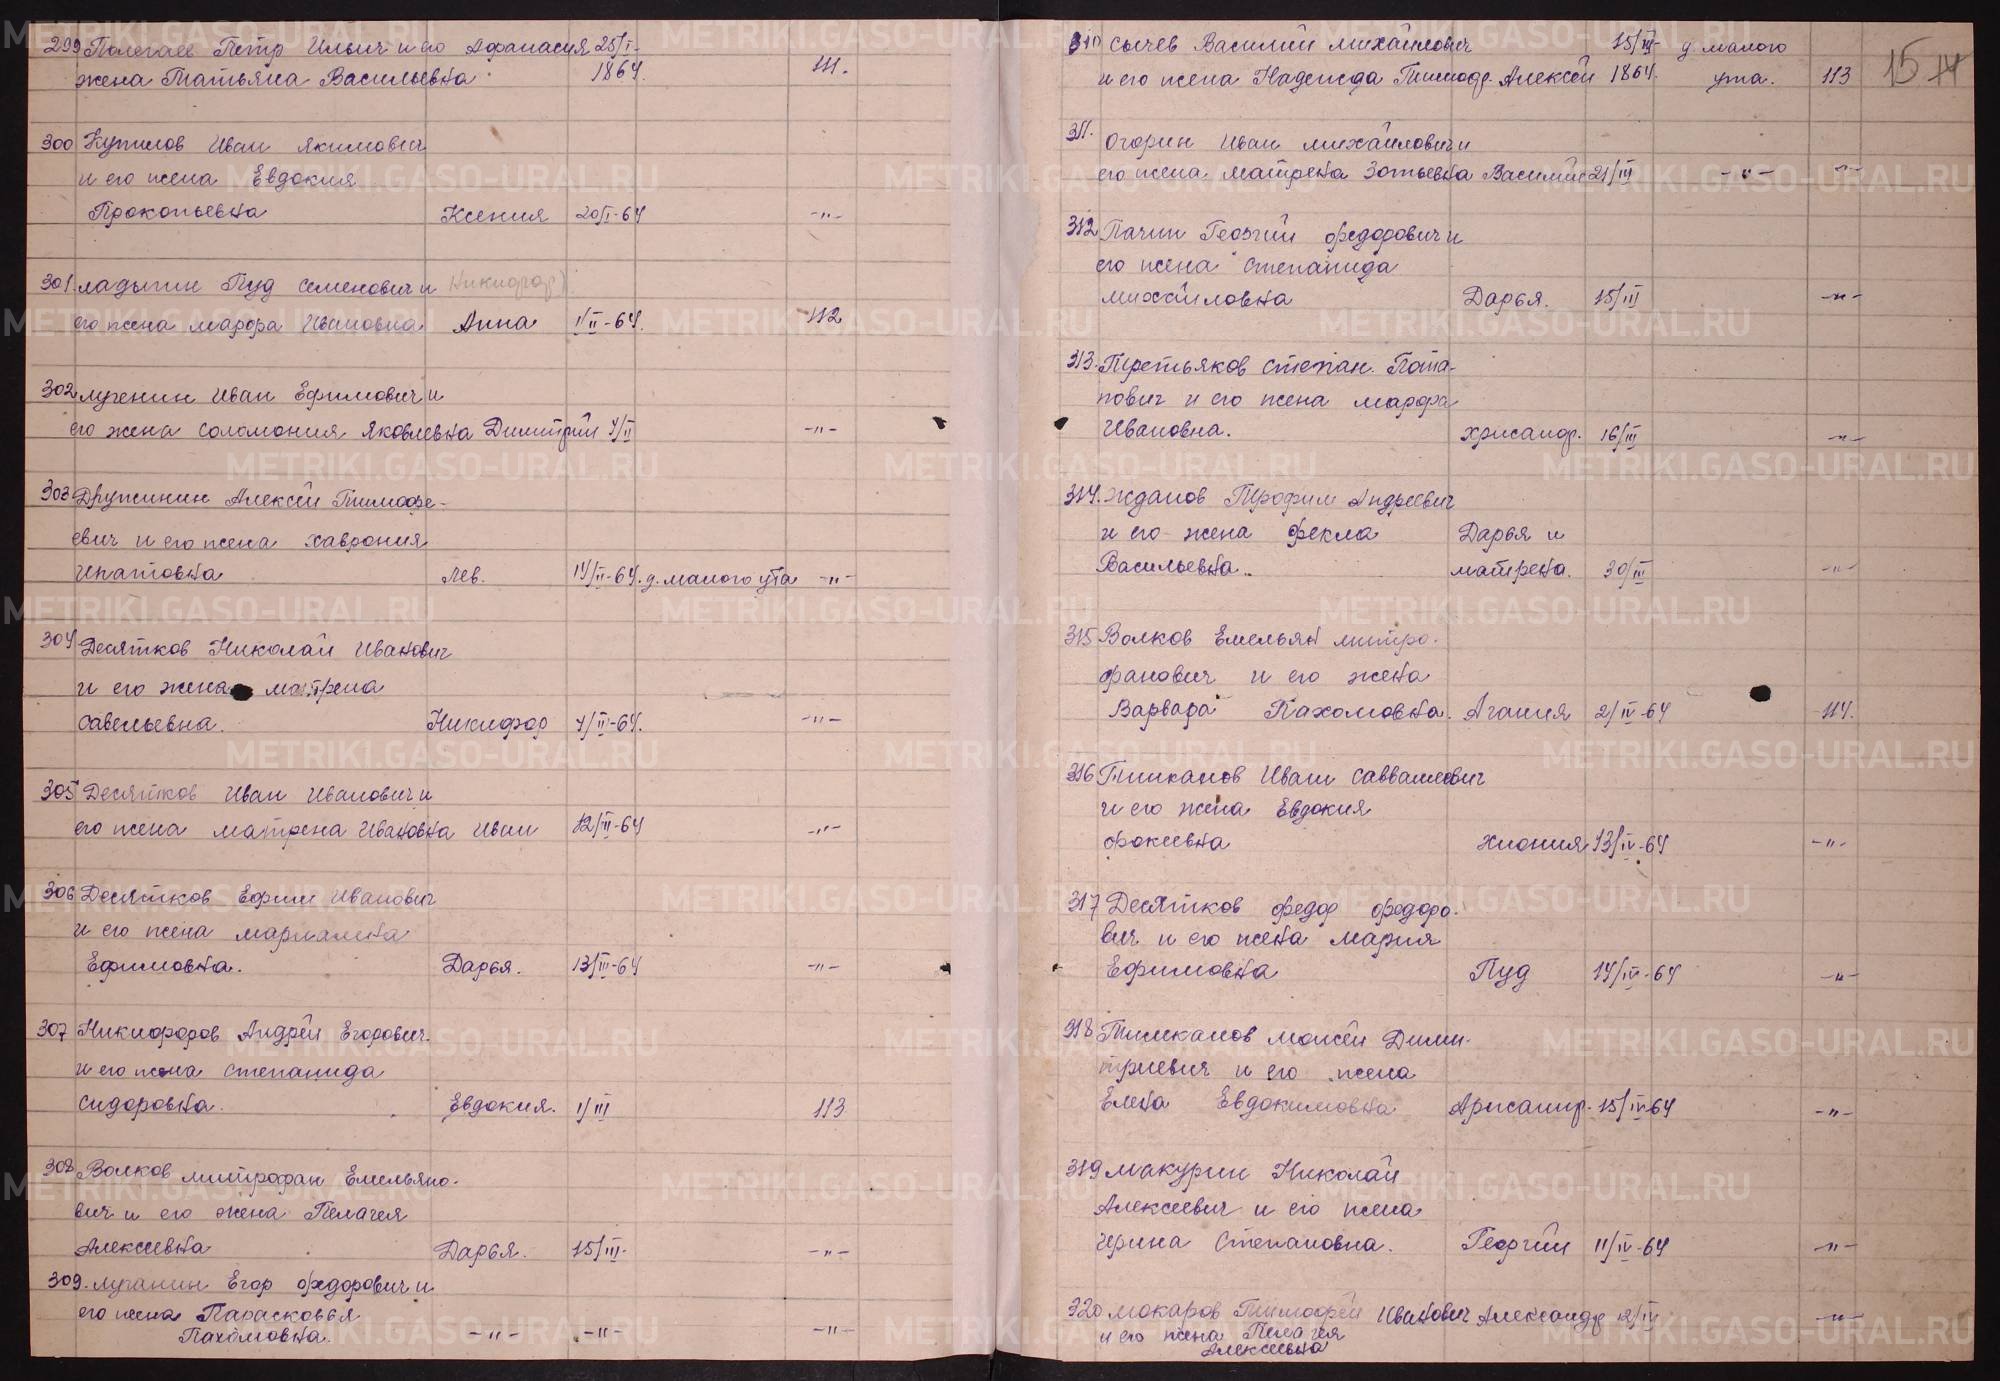 299 Полегаев Петр Ильич и его Афанасия 25/I-
жена Татьяна Васильевна 1864. 111.
300 Купилов Иван Якимович
и его жена Евдокия
Прокопьевна Ксения 20/I-64 -"-
301. Ладыгин Пуд Семенович и
его жена Марфа Ивановна Анна 1/II-64. 112
302 Лугенин Иван Ефимович и
его жена Соломония Яковлевна Димитрий 4/II -"-
303 Дружинин Алексей Тимофе-
евич и его жена Хаврония
Ипатовна Лев. 14/II-64. д. Малого Ута -"-
304 Десятков Николай Иванович
и его жена Матрена
Савельевна. Никифор 4/II-64. -"-
305 Десятков Иван Иванович и
его жена Матрена Ивановна Иван 12/II-64 -"-
306 Десятков Ефим Иванович
и его жена Мариамна
Ефимовна. Дарья. 13/III-64 -"-
307 Никифоров Андрей Егорович.
и его жена Степанида
Сидоровна. Евдокия. 1/III 113
308 Волков Митрофан Емельяно-
вич и его жена Пелагея
Алексеевна Дарья. 15/III- -"-
309. Лупанин Егор Федорович и
его жена Парасковья
Пахомовна. -"- -"- -"-
310 Сычев Василий Михайлович 15/III- д. Малого
и его жена Надежда Тимофе. Алексей 1864. ута. 113
15 14
311. Огорин Иван Михайлович и
его жена Матрена Зотьевна Василий 21/III -"- -"-
312 Пачин Георгий Федорович и
его жена Степанида
Михайловна Дарья. 15/III -"-
313. Третьяков Степан. Пота-
пович и его жена Марфа
Ивановна. Хрисанф. 16/III -"-
314. Жданов Трофим Андреевич
и его жена Фекла Дарья и
Васильевна.. Матрена. 30/III -"-
315 Волков Емельян Митро-
фанович и его жена
Варвара Пахомовна. Агапия 2/IV-64 114.
316 Тимканов Иван Савватеевич
и его жена Евдокия
Фокиевна Хиония 13/IV-64 -"-
317 Десятков Федор Федоро-
вич и его жена Мария
Ефимовна Пуд 14/IV-64 -"-
318 Тимканов Моисей Дими-
триевич и его жена
Елена Евдокимовна 15/IV-64 -"-
319 Макурин Николай
Алексеевич и его жена
Ирина Степановна. Георгий 11/IV-64 -"-
320 Мокаров Тимофей Иванович Александр 12/IV -"-
и его жена Пелагея
Алексеевна
METRIKI.GASO-URAL.RU